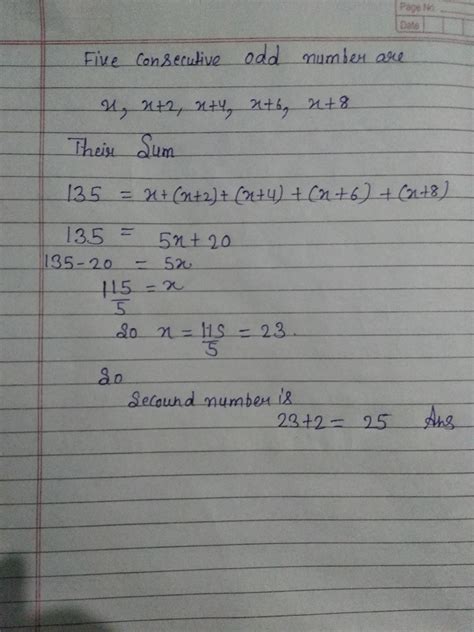 Page No.
Date
Five Consecutive odd number are
x, x+2, x+4, x+6, x+8
Their Sum
135 = x+(x+2)+(x+4)+(x+6)+(x+8)
135 = 5x+20
135-20 = 5x
115/5 = x
So x = 115/5 = 23.
So
Secound number is
23+2 = 25 Ans